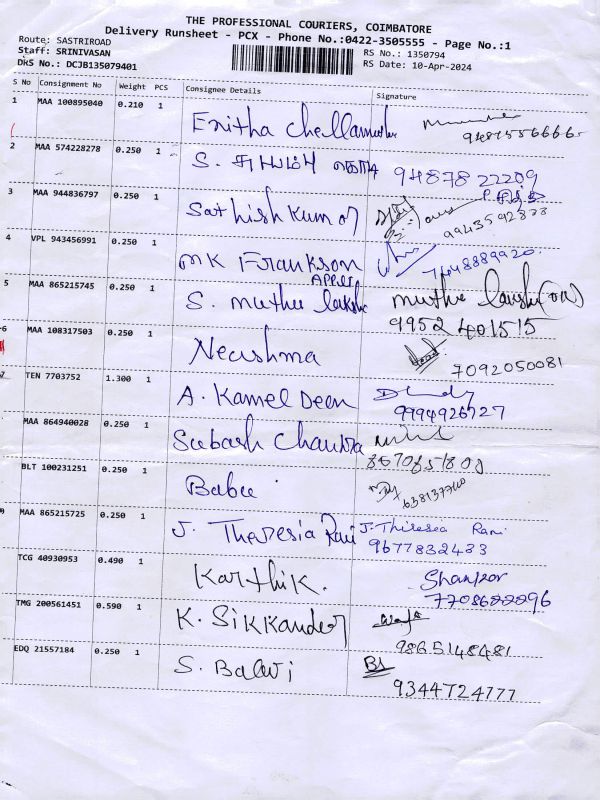 THE PROFESSIONAL COURIERS, COIMBATORE
Delivery Runsheet - PCX - Phone No.:0422-3505555 - Page No.:1
Route: SASTRIROAD
RS No.: 1350794
Staff: SRINIVASAN
RS Date: 10-Apr-2024
DRS No.: DCJB135079401
S No Consignment No Weight PCS Consignee Details Signature
1 MAA 100895040 0.210 1 Enitha
2 MAA 574228278 0.250 1 S. 94878 22209
3 MAA 944836797 0.250 1 Sathish Kumar
9943592873
4 VPL 943456991 0.250 1 MK Frankson
5 MAA 865215745 0.250 1 S. muthu
9952 401515
6 MAA 108317503 0.250 1 Neashma
7092050081
7 TEN 7703752 1.300 1 A. Kamel Deen
9994926727
MAA 864940028 0.250 1 Subash Chandra
BLT 100231251 0.250 1 Babu
MAA 865215725 0.250 1 J. Theresia Rani J. Thiresea Rani
9677832433
TCG 40930953 0.490 1 Karthik. Shankar
TMG 200561451 0.590 1 K. Sikkander
9865148481
EDQ 21557184 0.250 1 S. Balaji
9344724777